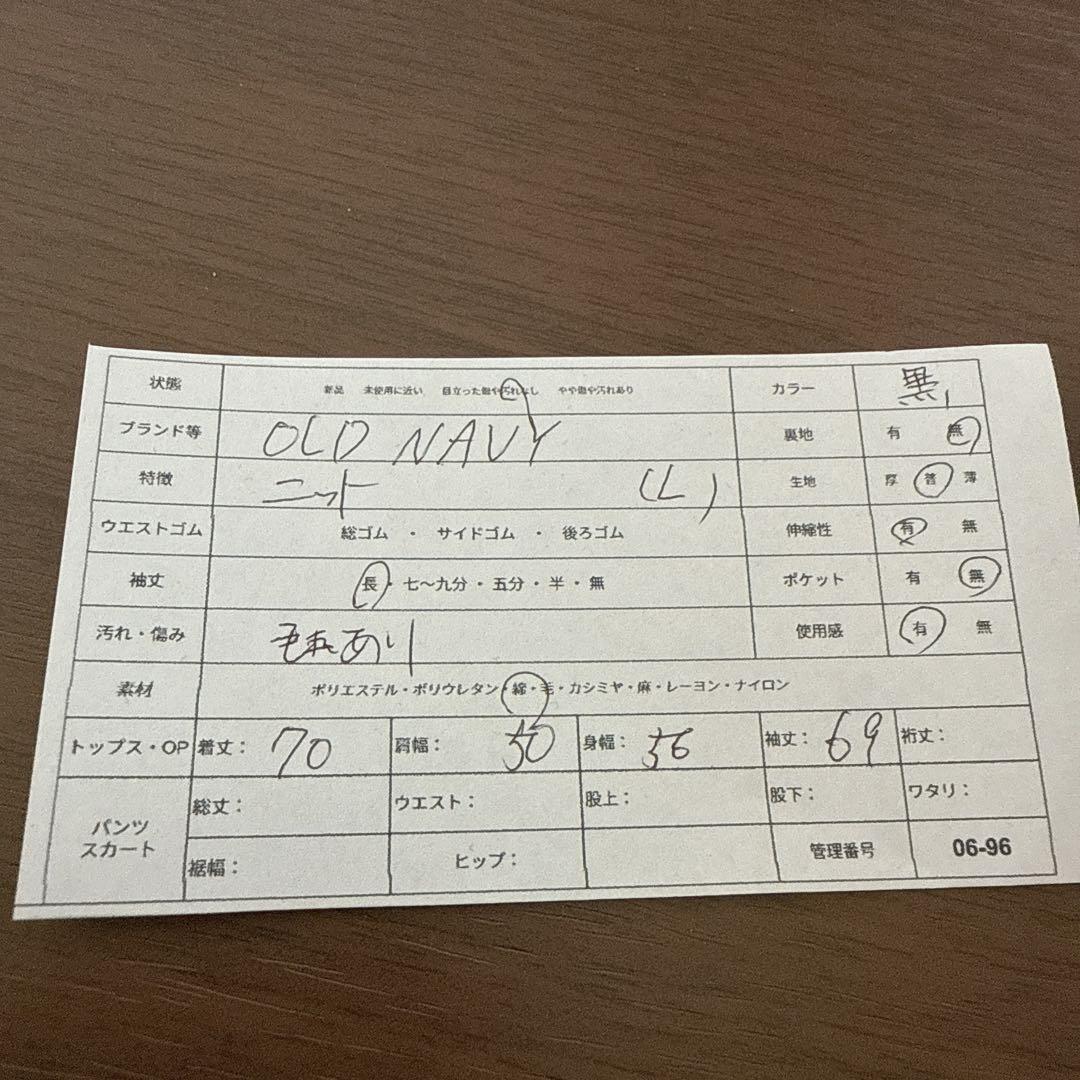 状態 新品 未使用に近い 目立った傷や汚れなし やや傷や汚れあり カラー 黒
ブランド等 OLD NAVY 裏地 有 無
特徴 ニット (L) 生地 厚 普 薄
ウエストゴム 総ゴム ・ サイドゴム ・ 後ろゴム 伸縮性 有 無
袖丈 長・七〜九分・五分・半・無 ポケット 有 無
汚れ・傷み 毛玉あり 使用感 有 無
素材 ポリエステル・ポリウレタン・綿・毛・カシミヤ・麻・レーヨン・ナイロン
トップス・OP 着丈: 70 肩幅: 50 身幅: 56 袖丈: 69 裄丈:
パンツ スカート 総丈: ウエスト: 股上: 股下: ワタリ:
裾幅: ヒップ: 管理番号 06-96